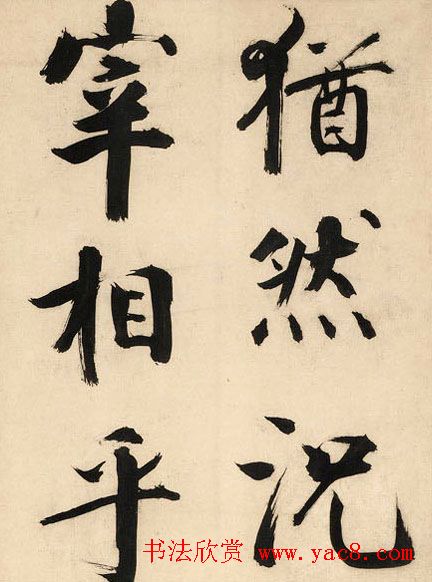 猶然况
宰相乎
书法欣赏 www.yac8.com